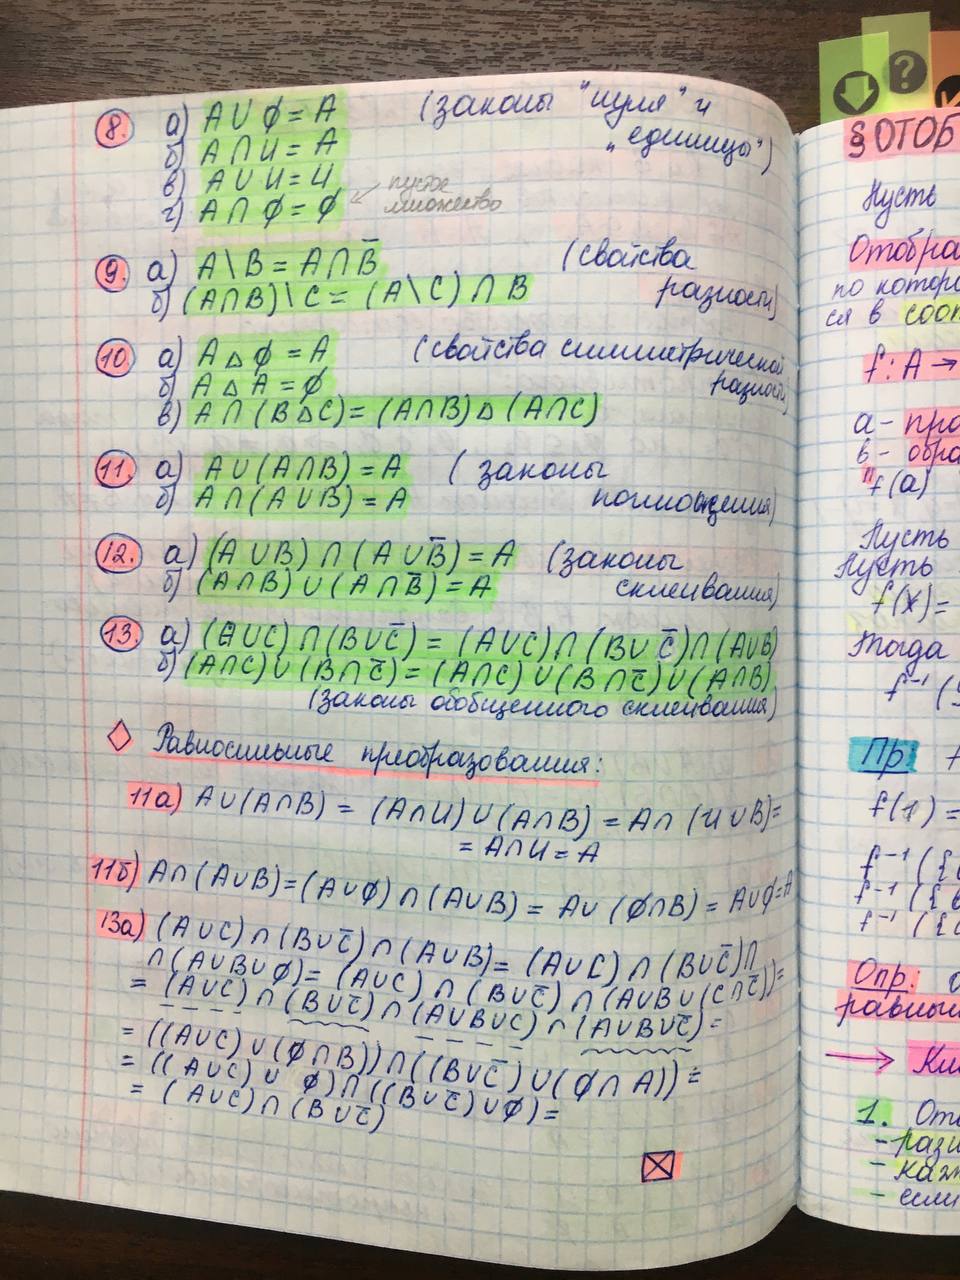 8. а) A ∪ ∅ = A (законы "нуля" и
б) A ∩ U = A "единицы")
в) A ∪ U = U
г) A ∩ ∅ = ∅ ← пустое
множество
9. а) A \ B = A ∩ B̅ (свойства
б) (A∩B) \ C = (A \ C) ∩ B разности)
10. а) A △ ∅ = A (свойства симметрической
б) A △ A = ∅ разности)
в) A ∩ (B △ C) = (A∩B) △ (A∩C)
11. а) A ∪ (A∩B) = A (законы
б) A ∩ (A∪B) = A поглощения)
12. а) (A ∪ B) ∩ (A ∪ B̅) = A (законы
б) (A∩B) ∪ (A ∩ B̅) = A склеивания)
13. а) (A∪C) ∩ (B∪C̅) = (A∪C) ∩ (B∪C̅) ∩ (A∪B)
б) (A∩C) ∪ (B∩C̅) = (A∩C) ∪ (B∩C̅) ∪ (A∩B)
(законы обобщенного склеивания)
◇ Равносильные преобразования:
11а) A∪(A∩B) = (A∩U) ∪ (A∩B) = A∩ (U∪B) =
= A∩U = A
11б) A∩(A∪B) = (A∪∅) ∩ (A∪B) = A∪ (∅∩B) = A∪∅ = A
13а) (A∪C) ∩ (B∪C̅) ∩ (A∪B) = (A∪C) ∩ (B∪C̅) ∩
∩ (A∪B∪∅) = (A∪C) ∩ (B∪C̅) ∩ (A∪B∪(C∩C̅)) =
= (A∪C) ∩ (B∪C̅) ∩ (A∪B∪C) ∩ (A∪B∪C̅) =
= ((A∪C) ∪ (∅∩B)) ∩ ((B∪C̅) ∪ (∅∩A)) =
= ((A∪C) ∪ ∅) ∩ ((B∪C̅) ∪ ∅) =
= (A∪C) ∩ (B∪C̅)
?
§ ОТОБ
Пусть
Отобра
по которо
ся в соот
f : A →
а - про
в - обра
"f(a)
Пусть
Пусть
f(x) =
Тогда
f⁻¹(
Пр:
f(1) =
f⁻¹({
f⁻¹({
f⁻¹({
Опр:
равны
→ Кл
1. Ото
- разн
- каж
- если